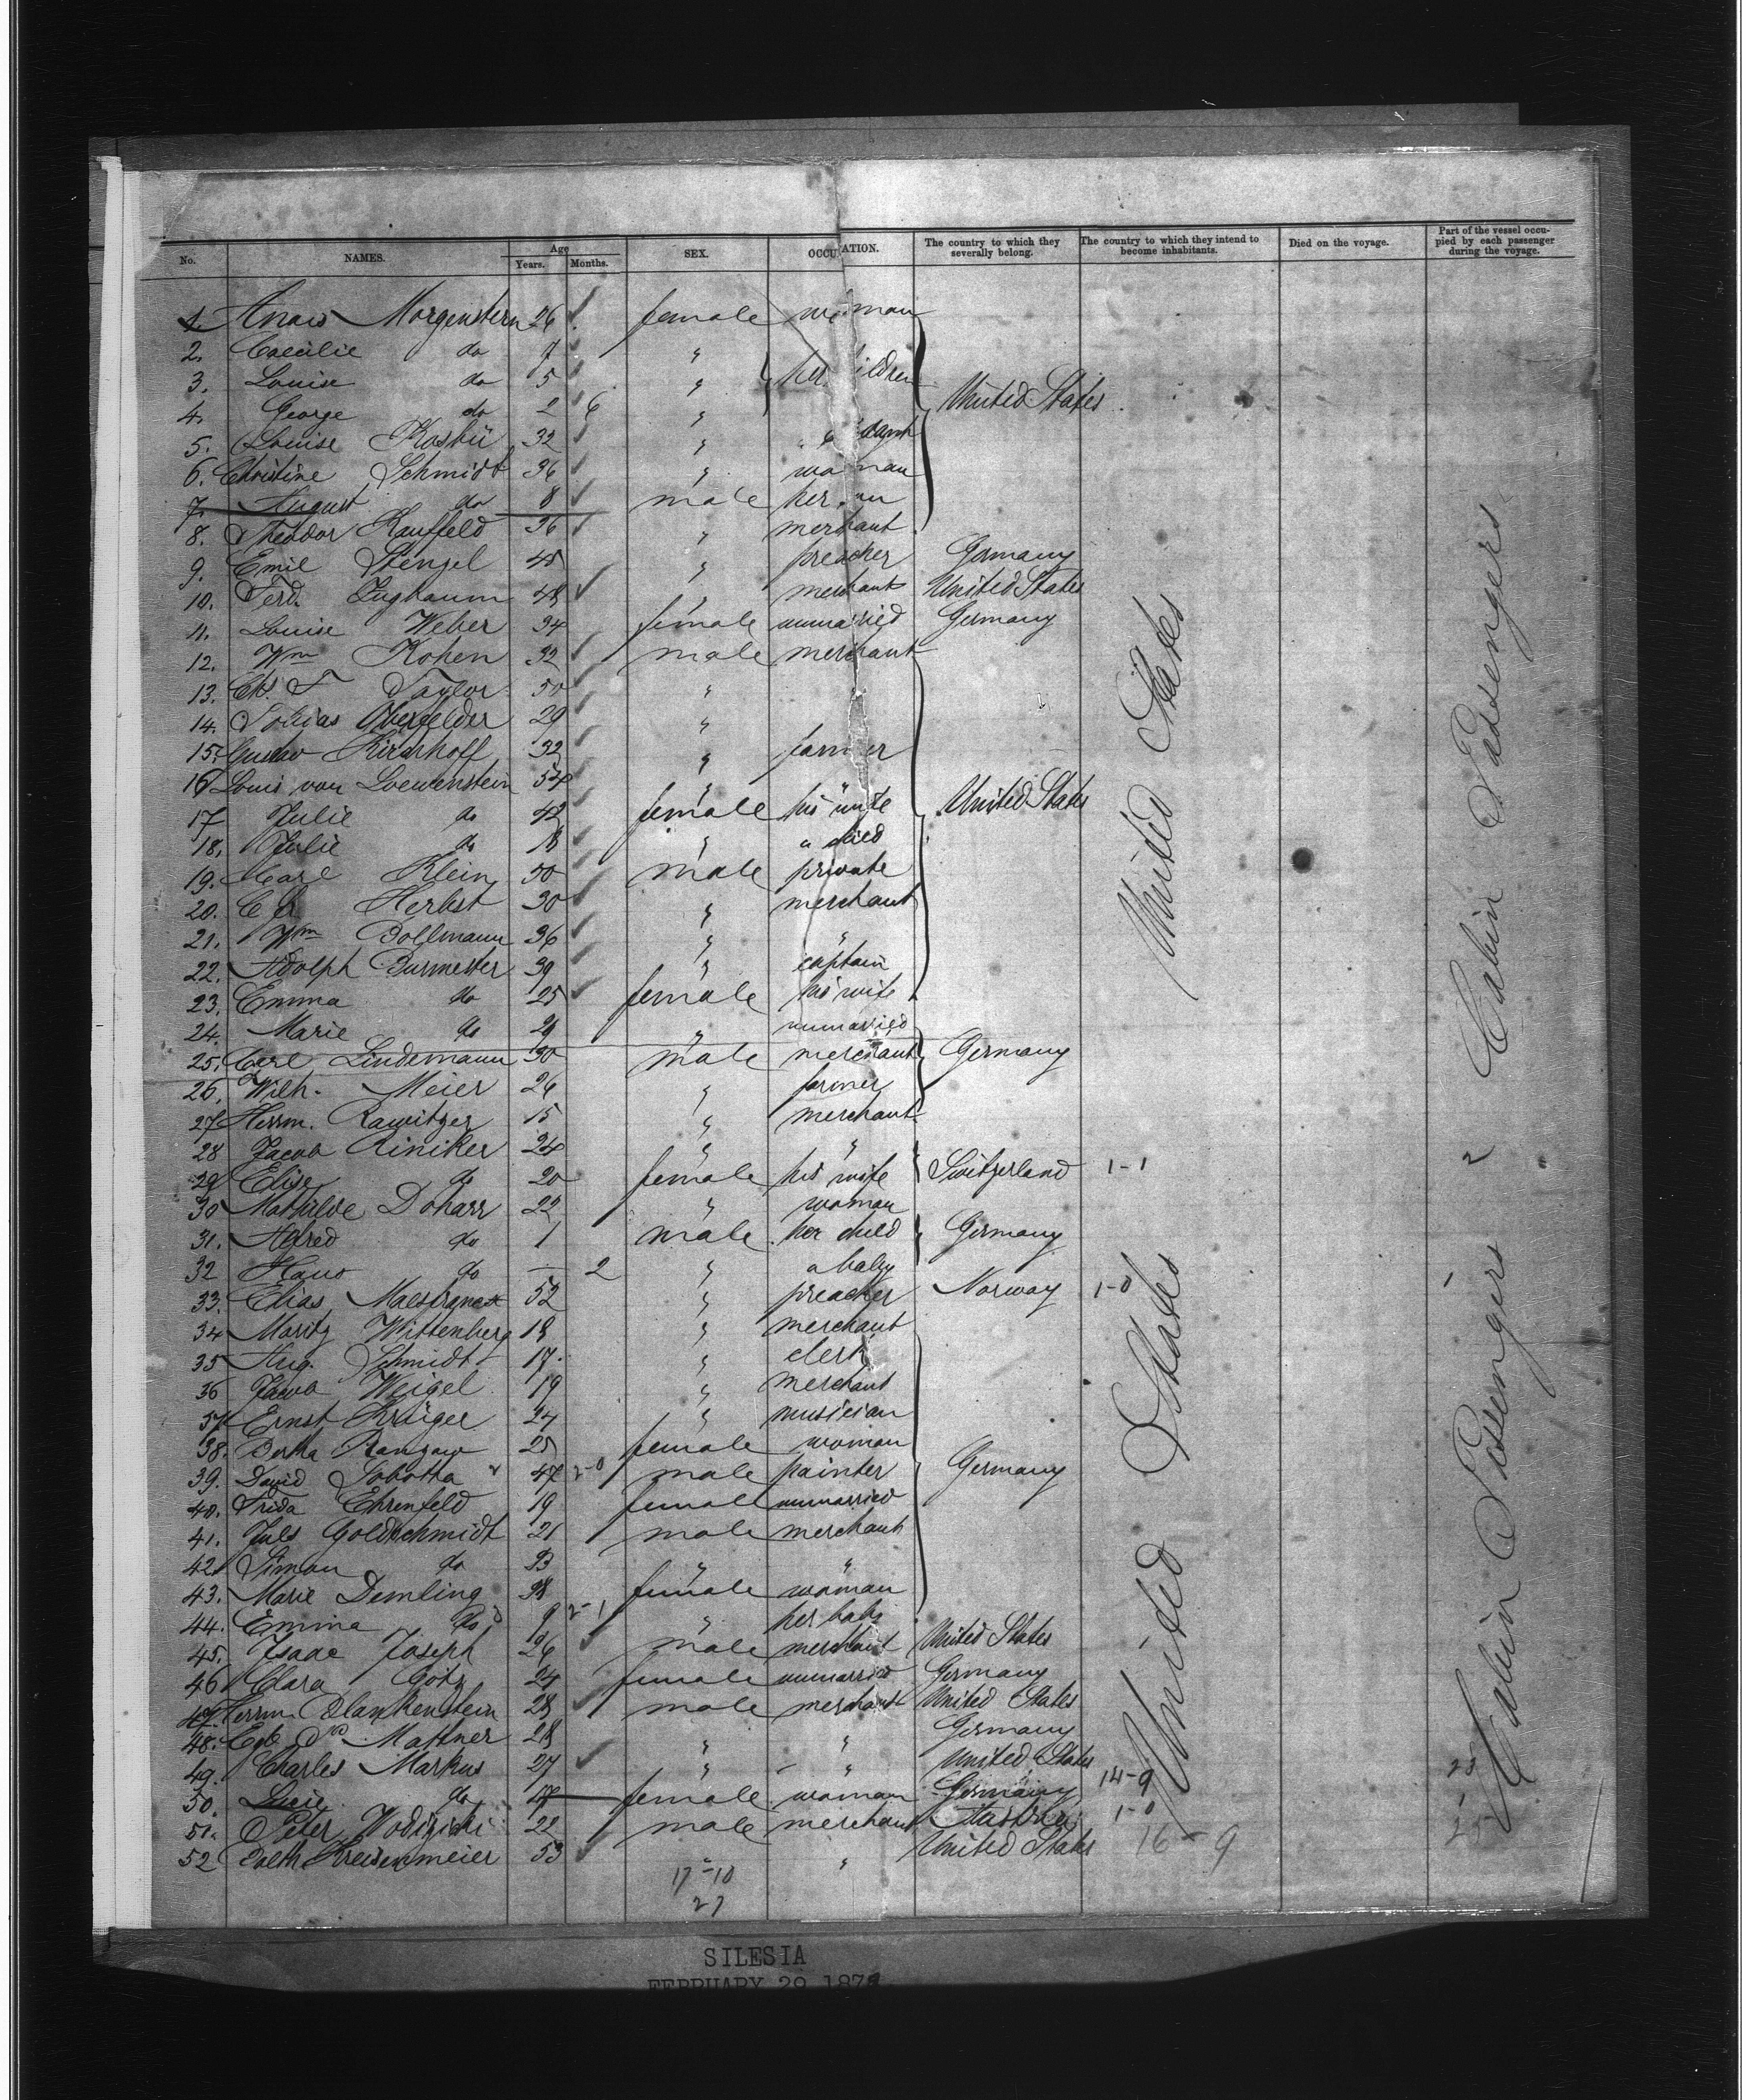 No. NAMES. Age Years. Months. SEX. OCCUPATION. The country to which they severally belong. The country to which they intend to become inhabitants. Died on the voyage. Part of the vessel occupied by each passenger during the voyage.
1. Morgenstern 26 female woman
2. Caecilie do 7 "
3. Louise do 5 " her children
4. George do 2 6 " United States
5. Louise 32 "
6. Christine Schmidt 36 " woman
7. August do 8 male her son
8. Theodor Kauffeld 36 " merchant
9. Emil Stengel 45 " preacher Germany
10. Ferd. 48 " merchant United States
11. Louise Weber 34 female unmarried Germany
12. Wm Kohen 32 male merchant
13. Ch. F Taylor 50 " "
14. Tobias Oberfelder 29 "
15. Gustav Kirchhoff 32 " farmer
16 Louis von Loewenstein 54 " "
17 Julie do 42 female his wife United States
18. Julie do 18 "
19. Carl Klein 50 male private
20. Herbst 30 " merchant
21. Wm Dollmann 36 " "
22. Adolph Burmester 39 " captain
23. Emma do 25 female his wife
24. Marie do " unmarried
25. Carl Lindemann 30 male merchant Germany
26. Wilh. Meier 26 " farmer
27 Herrm. Rawitzer 15 " merchant
28 Jacob Riniker 24 " "
29 Elise do 20 female his wife Switzerland 1-1
30 Mathilde Doharr 22 " woman
31. Alfred do 1 male her child Germany
32 Hans do — 2 " a baby
33. Elias 52 " preacher Norway 1-0
34 Moritz Wittenberg 18 " merchant
35 Aug. Schmidt 17 " clerk
36 Jacob Weigel 19 " merchant
37 Ernst Krüger 24 " musician
38. Bertha Ranzow 25 female woman
39. David Sobotta 47 2-0 male painter Germany
40. Frida Ehrenfeld 19 female unmarried
41. Juls Goldschmidt 21 male merchant
42. Simon do 23 " "
43. Marie Demling 38 female woman
44. Emma do 9 2-1 " her baby
45. Isaac Joseph 26 male merchant United States
46 Clara Götz 24 female unmarried Germany
47. Herrm. Blankenstein 28 male merchant United States
48. Mattner 28 " " Germany
49. Charles Markus 27 " " United States
50. Lucie do 17 female woman Germany 14-9
51. Peter 22 male merchant 1-0
52 53 " United States 16-9
17-10
27
United States
United States
2 Cabin Passengers
1 Cabin Passengers
25
SILESIA
FEBRUARY 29 187